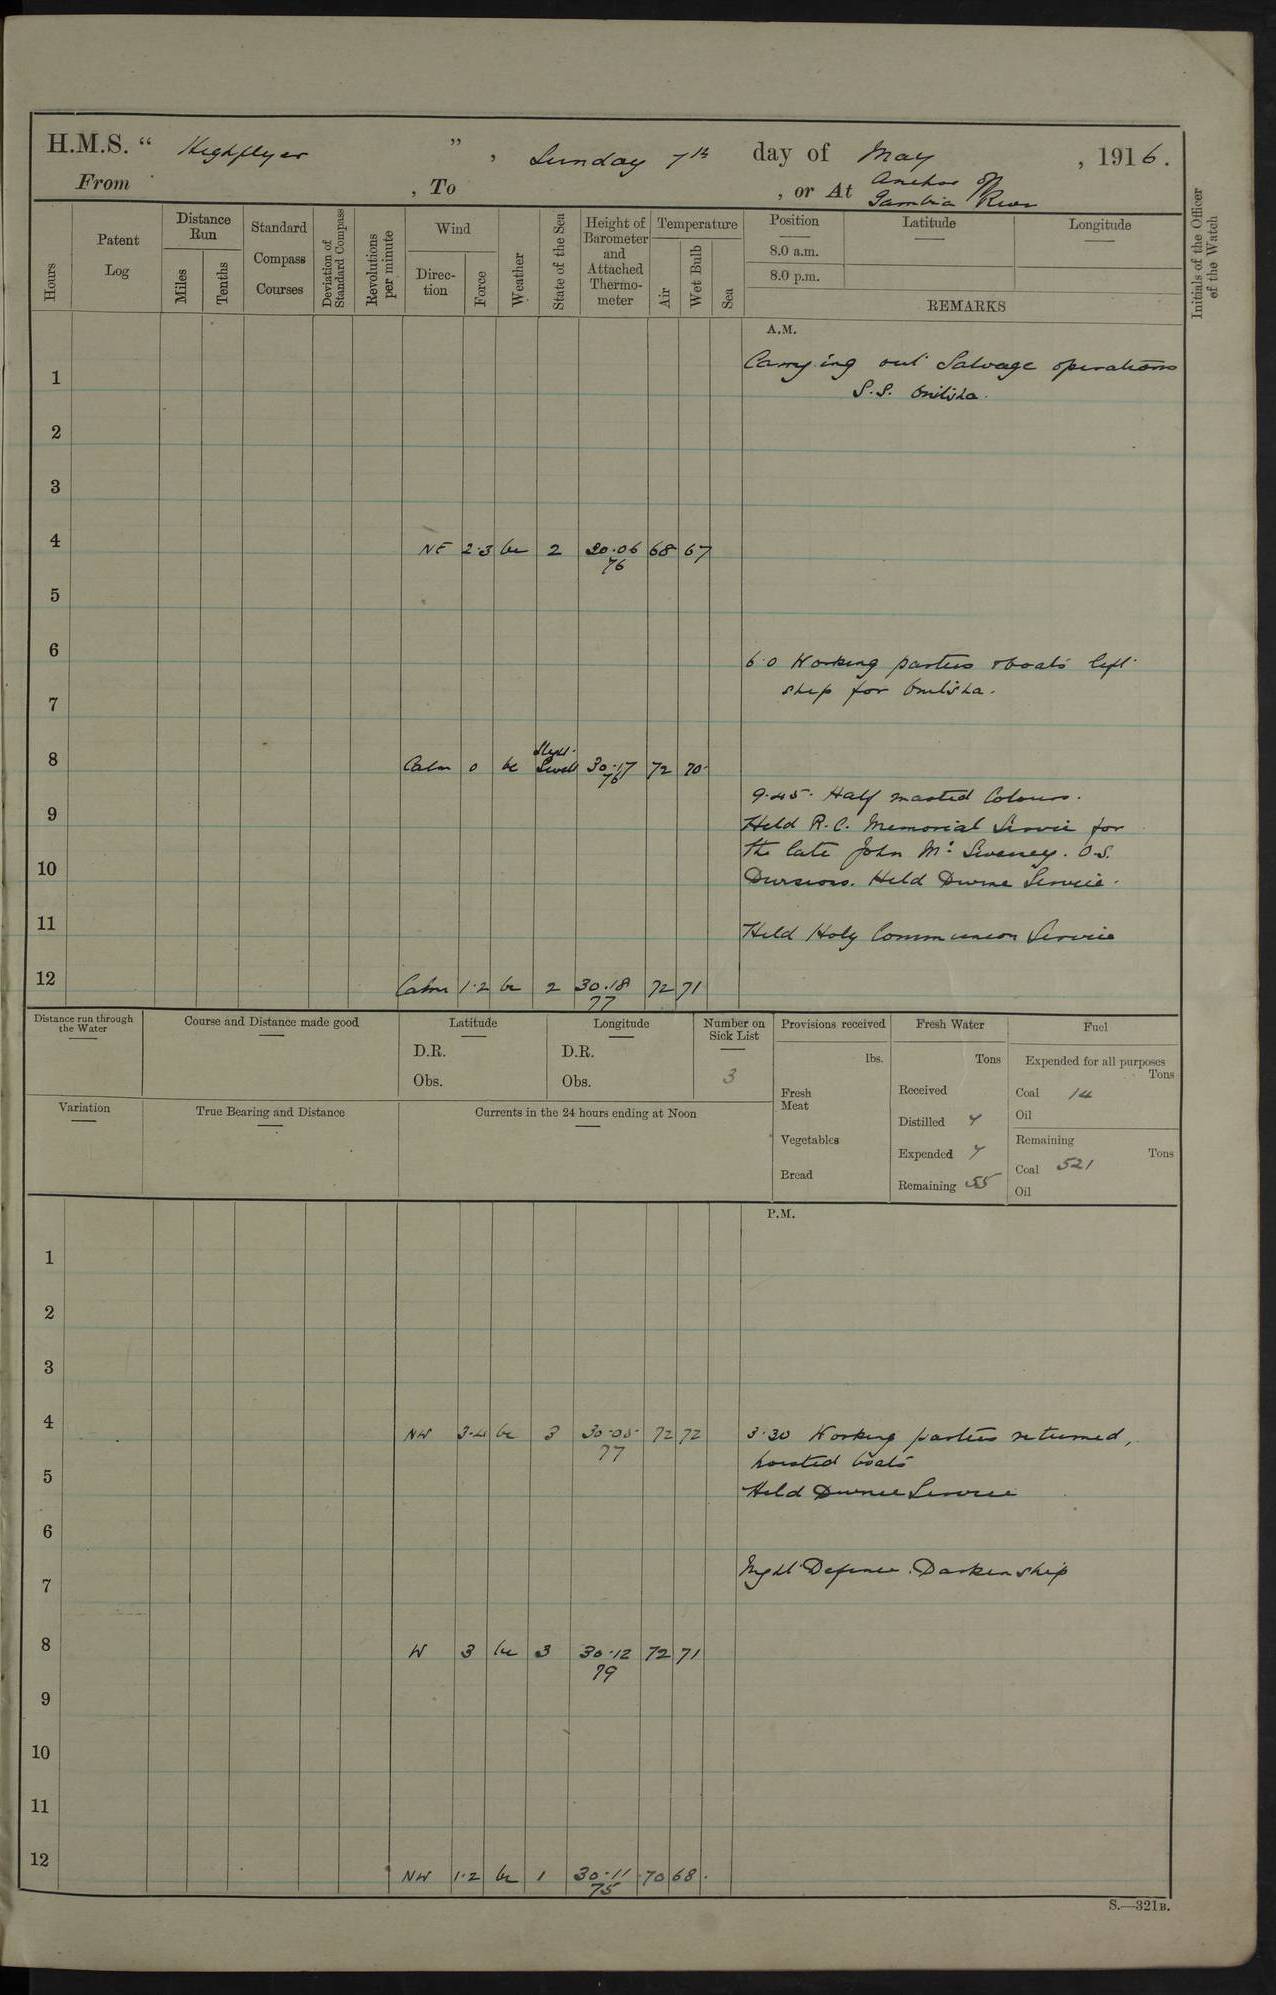 H.M.S. “ Highflyer ” , Sunday 7th day of May , 1916.
From , To , or At Anchor off
Gambia River
Hours
Patent Log
Distance Run
Miles
Tenths
Standard Compass Courses
Deviation of Standard Compass
Revolutions per minute
Wind
Direc-tion
Force
Weather
State of the Sea
Height of Barometer and Attached Thermo-meter
Temperature
Air
Wet Bulb
Sea
Position
8.0 a.m.
8.0 p.m.
Latitude
Longitude
REMARKS
Initials of the Officer of the Watch
A.M.
Carrying out Salvage operations
1
S.S. Onitsha.
2
3
4 NE 2.3 bc 2 30.06 68 67
76
5
6
6.0 Working parties & boats left
ship for Onitsha.
7
8 Calm 0 bc Slight Swell 30.17 72 70
76
9.45. Half masted Colours.
9
Held R.C. Memorial Service for
the late John Mc Sweeney. O.S.
10
Divisions. Held Divine Service.
11
Held Holy Communion Service
12 Calm 1.2 bc 2 30.18 72 71
77
Distance run through the Water
Course and Distance made good
Latitude
D.R.
Obs.
Longitude
D.R.
Obs.
Number on Sick List
3
Provisions received
lbs.
Fresh Meat
Vegetables
Bread
Fresh Water
Tons
Received
Distilled 7
Expended 7
Remaining 55
Fuel
Expended for all purposes
Tons
Coal 14
Oil
Remaining
Tons
Coal 521
Oil
Variation
True Bearing and Distance
Currents in the 24 hours ending at Noon
P.M.
1
2
3
4 NW 3.4 bc 3 30.05 72 72 3.30 Working parties returned,
77 hoisted boats
5
Held Divine Service
6
Night Defence. Darken ship
7
8 W 3 bc 3 30.12 72 71
79
9
10
11
12 NW 1.2 bc 1 30.11 70 68.
75
S.—321B.